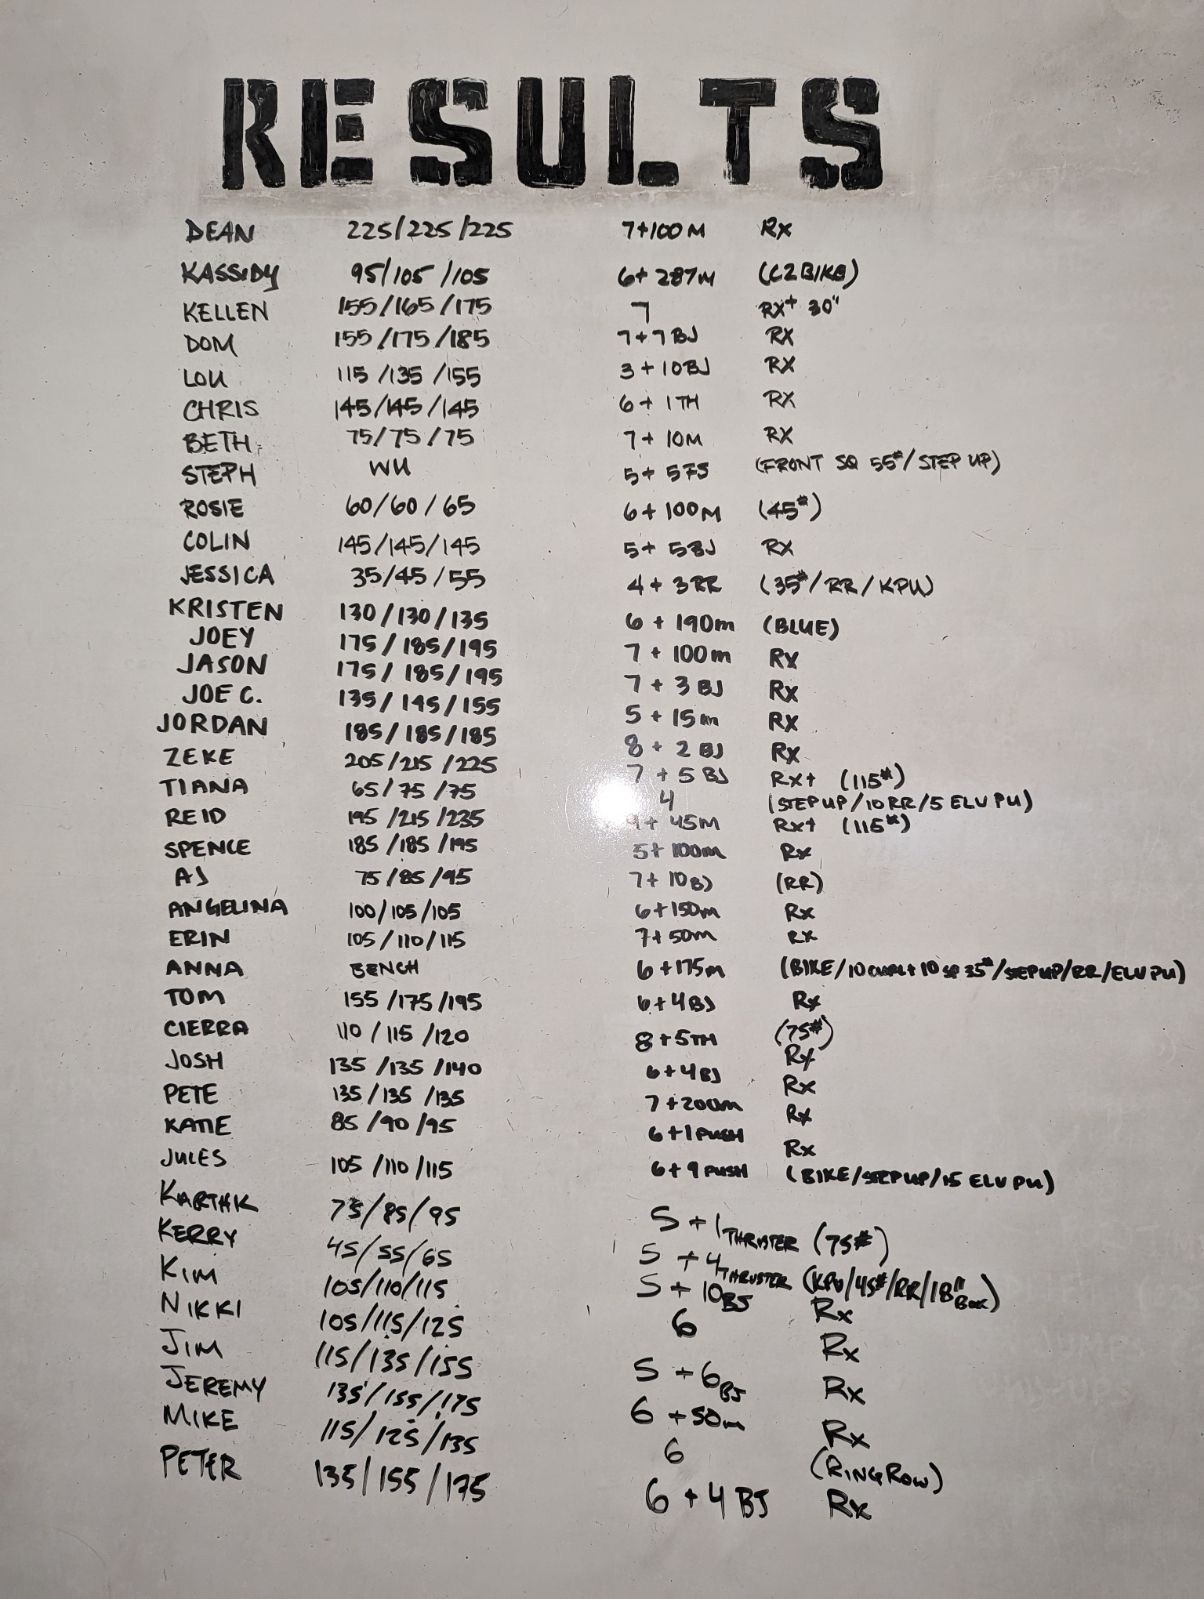 RESULTS
DEAN 225/225/225 7+100M Rx
KASSIDY 95/105/105 6+287M (C2BIKE)
KELLEN 155/165/175 7 RX+ 30"
DOM 155/175/185 7+7BJ RX
LOU 115/135/155 3+10BJ RX
CHRIS 145/145/145 6+1TH RX
BETH 75/75/75 7+10M RX
STEPH WU 5+5FS (FRONT SQ 55#/STEP UP)
ROSIE 60/60/65 6+100M (45#)
COLIN 145/145/145 5+5BJ RX
JESSICA 35/45/55 4+3RR (35#/RR/KPU)
KRISTEN 130/130/135 6+190m (BLUE)
JOEY 175/185/195 7+100m Rx
JASON 175/185/195 7+3BJ Rx
JOE C. 135/145/155 5+15m Rx
JORDAN 185/185/185 8+2BJ Rx
ZEKE 205/215/225 7+5BJ Rx+ (115#)
TIANA 65/75/75 4 (STEP UP/10 RR/5 ELV PU)
REID 195/215/235 9+45M Rx+ (115#)
SPENCE 185/185/195 5+100m Rx
AJ 75/85/95 7+10BJ (RR)
ANGELINA 100/105/105 6+150m Rx
ERIN 105/110/115 7+50m Rx
ANNA BENCH 6+175m (BIKE/10 10 35#/STEPUP/RR/ELV PU)
TOM 155/175/195 6+4BJ Rx
CIERRA 110/115/120 8+5TH (75#)
JOSH 135/135/140 6+4BJ Rx
PETE 135/135/135 7+200m Rx
KATIE 85/90/95 6+1PUSH Rx
JULES 105/110/115 6+9PUSH Rx (BIKE/STEPUP/15 ELV PU)
KARTHIK 75/85/95 5+1THRUSTER (75#)
KERRY 45/55/65 5+4THRUSTER (KPU/45#/RR/18" Box)
KIM 105/110/115 5+10BJ Rx
NIKKI 105/115/125 6 Rx
JIM 115/135/155 5+6BJ Rx
JEREMY 135/155/175 6+50m Rx
MIKE 115/125/135 6 (RING ROW)
PETER 135/155/175 6+4BJ Rx